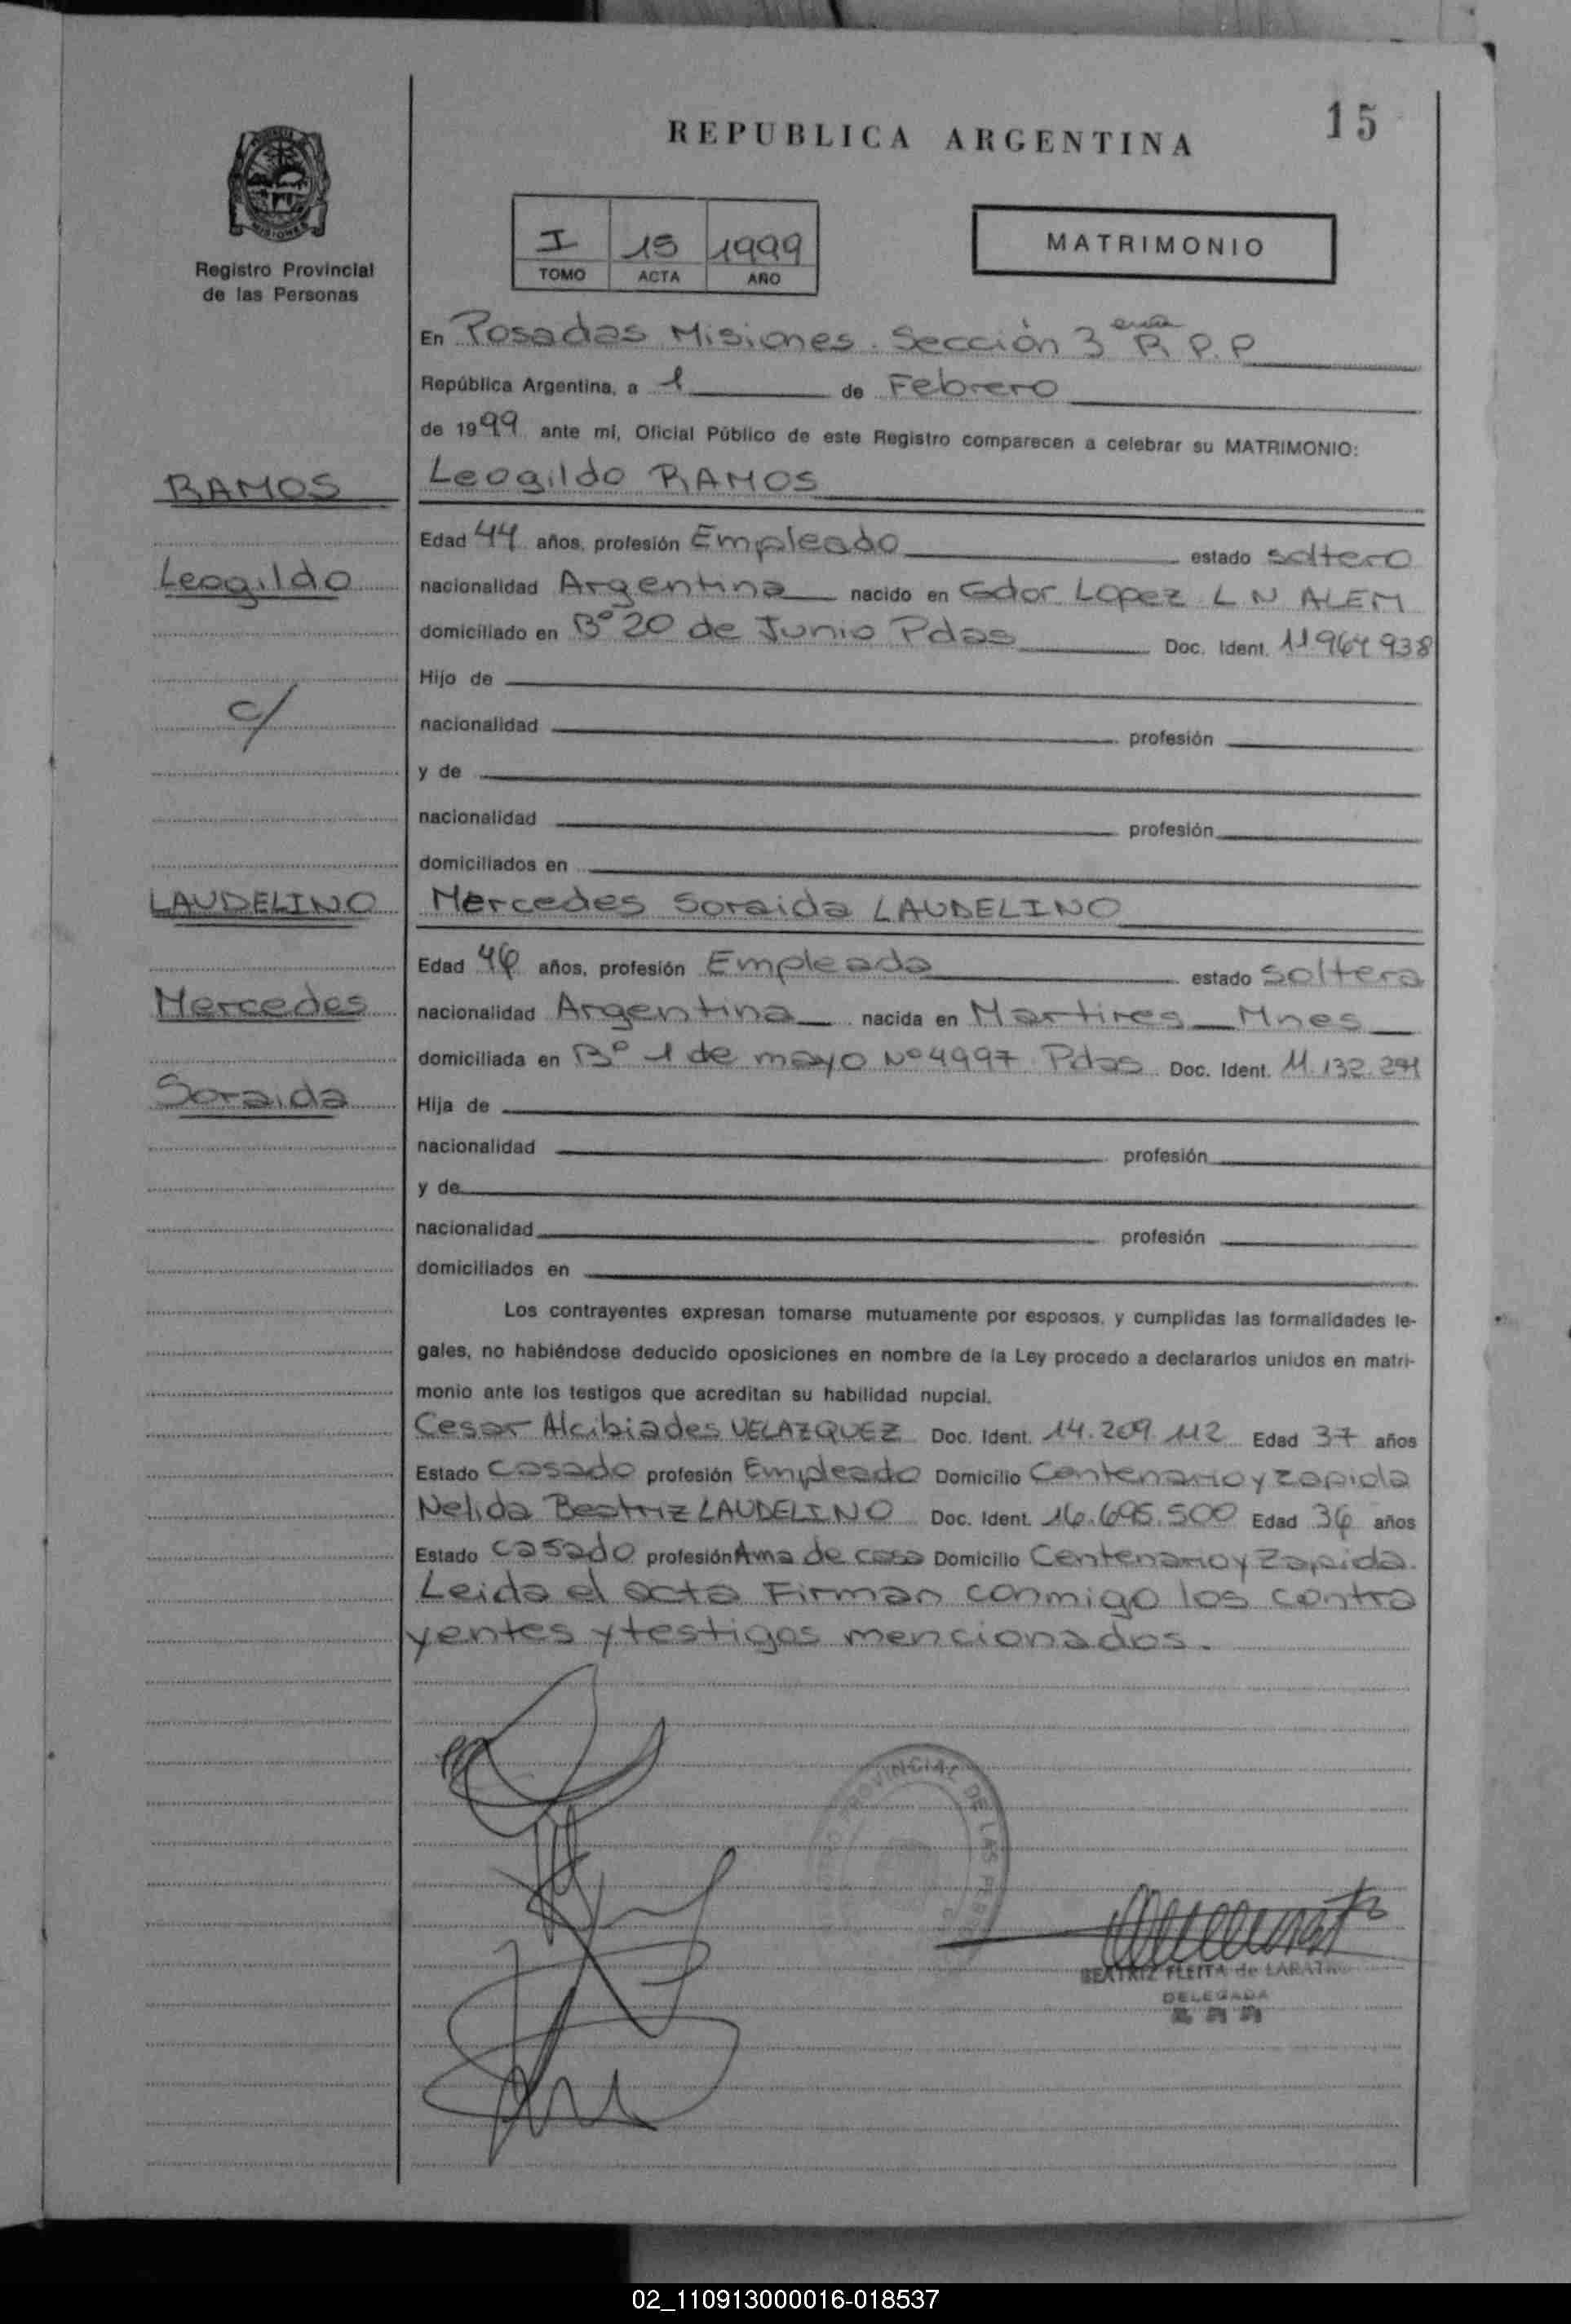 15
REPUBLICA ARGENTINA
MISIONES
Registro Provincial
de las Personas
I 15 1999
TOMO ACTA AÑO
MATRIMONIO
En Posadas Misiones. Sección 3 era R.P.P
República Argentina, a 1 de Febrero
de 1999 ante mí, Oficial Público de este Registro comparecen a celebrar su MATRIMONIO:
RAMOS
Leogildo RAMOS
Edad 44 años, profesión Empleado estado soltero
Leogildo
nacionalidad Argentina nacido en Gdor Lopez L N ALEM
domiciliado en Bº 20 de Junio Pdas Doc. Ident. 11.964.938
Hijo de
c/
nacionalidad profesión
y de
nacionalidad profesión
domiciliados en
LAUDELINO
Mercedes Soraida LAUDELINO
Edad 46 años, profesión Empleada estado soltera
Mercedes
nacionalidad Argentina nacida en Martires Mnes
domiciliada en Bº 1 de mayo Nº 4997 Pdas Doc. Ident. 11.132.291
Soraida
Hija de
nacionalidad profesión
y de
nacionalidad profesión
domiciliados en
Los contrayentes expresan tomarse mutuamente por esposos, y cumplidas las formalidades le-
gales, no habiéndose deducido oposiciones en nombre de la Ley procedo a declararlos unidos en matri-
monio ante los testigos que acreditan su habilidad nupcial.
Cesar Alcibiades VELAZQUEZ Doc. Ident. 14.209.112 Edad 37 años
Estado casado profesión Empleado Domicilio Centenario y Zapiola
Nelida Beatriz LAUDELINO Doc. Ident. 16.695.500 Edad 36 años
Estado casado profesión Ama de casa Domicilio Centenario y Zapiola.
Leida el acta Firman conmigo los contra
yentes y testigos mencionados.
PROVINCIAL DE LAS
BEATRIZ FLEITA de LARATRO
DELEGADA
02_110913000016-018537